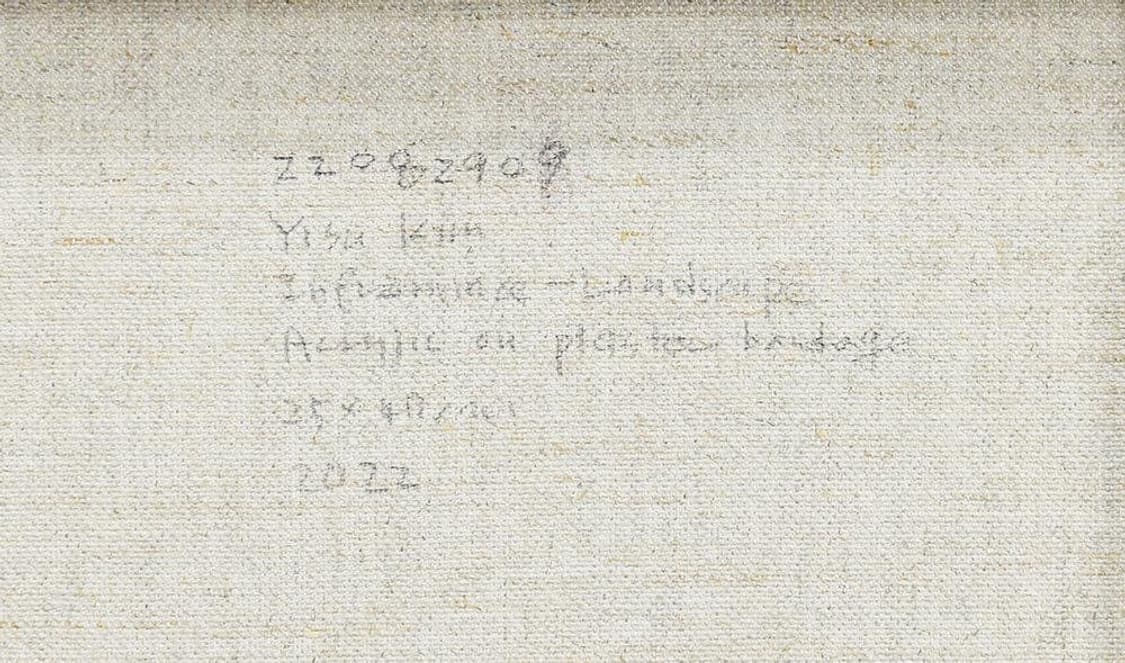 22082909
Yisu Kim
Inframince - Landscape
Acrylic on plaster bandage
25×
2022